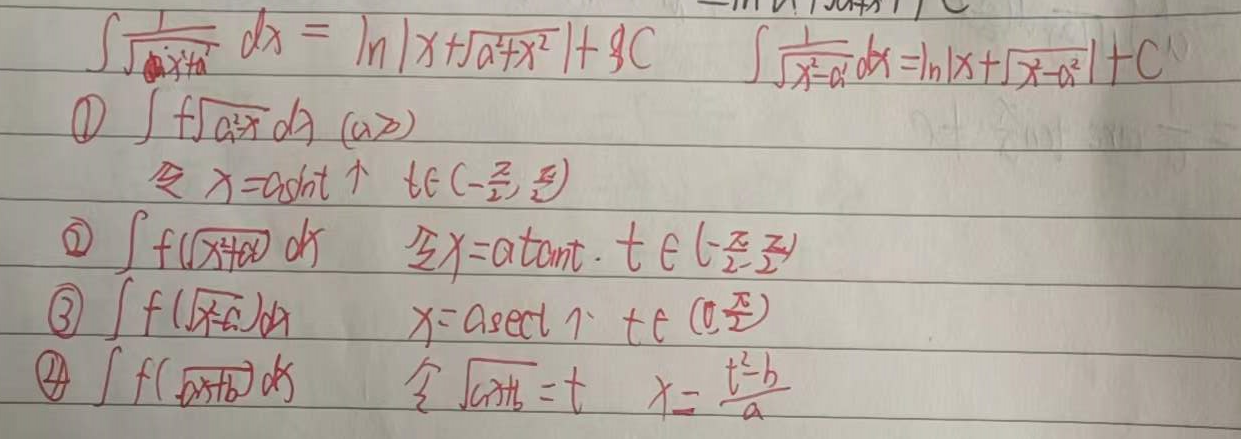 ∫ 1/√(x²+a²) dx = ln|x+√(a²+x²)|+C ∫ 1/√(x²-a²) dx=ln|x+√(x²-a²)|+C
① ∫ f√(a²-x²) dx (a>0)
令 x=asint ↑ t∈(-π/2, π/2)
② ∫ f(√(x²+a²)) dx 令x=atant. t∈(-π/2, π/2)
③ ∫ f(√(x²-a²))dx x=asect ↑. t∈(0, π/2)
④ ∫ f(√(ax+b)) dx 令 √(ax+b)=t x=(t²-b)/a